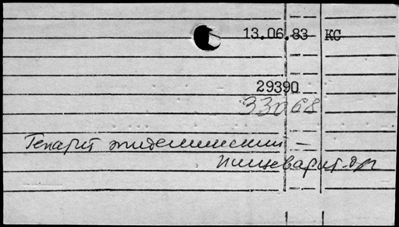 13.06.83 КС
29390
33068
Гепатит эпидемический –
пищеварит. орг